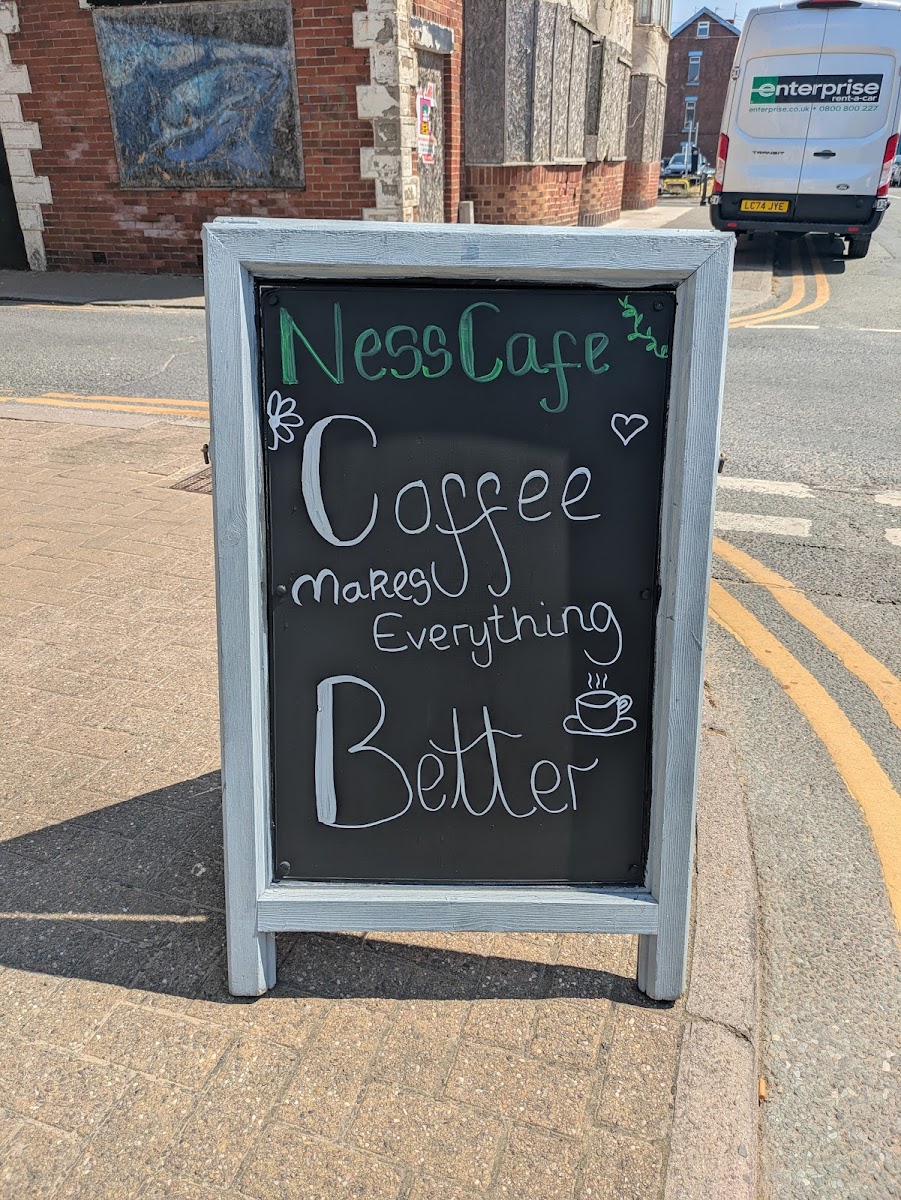 enterprise
rent-a-car
enterprise.co.uk • 0800 800 227
TRANSIT
LC74 JYE
Ness Cafe
Coffee
makes
Everything
Better